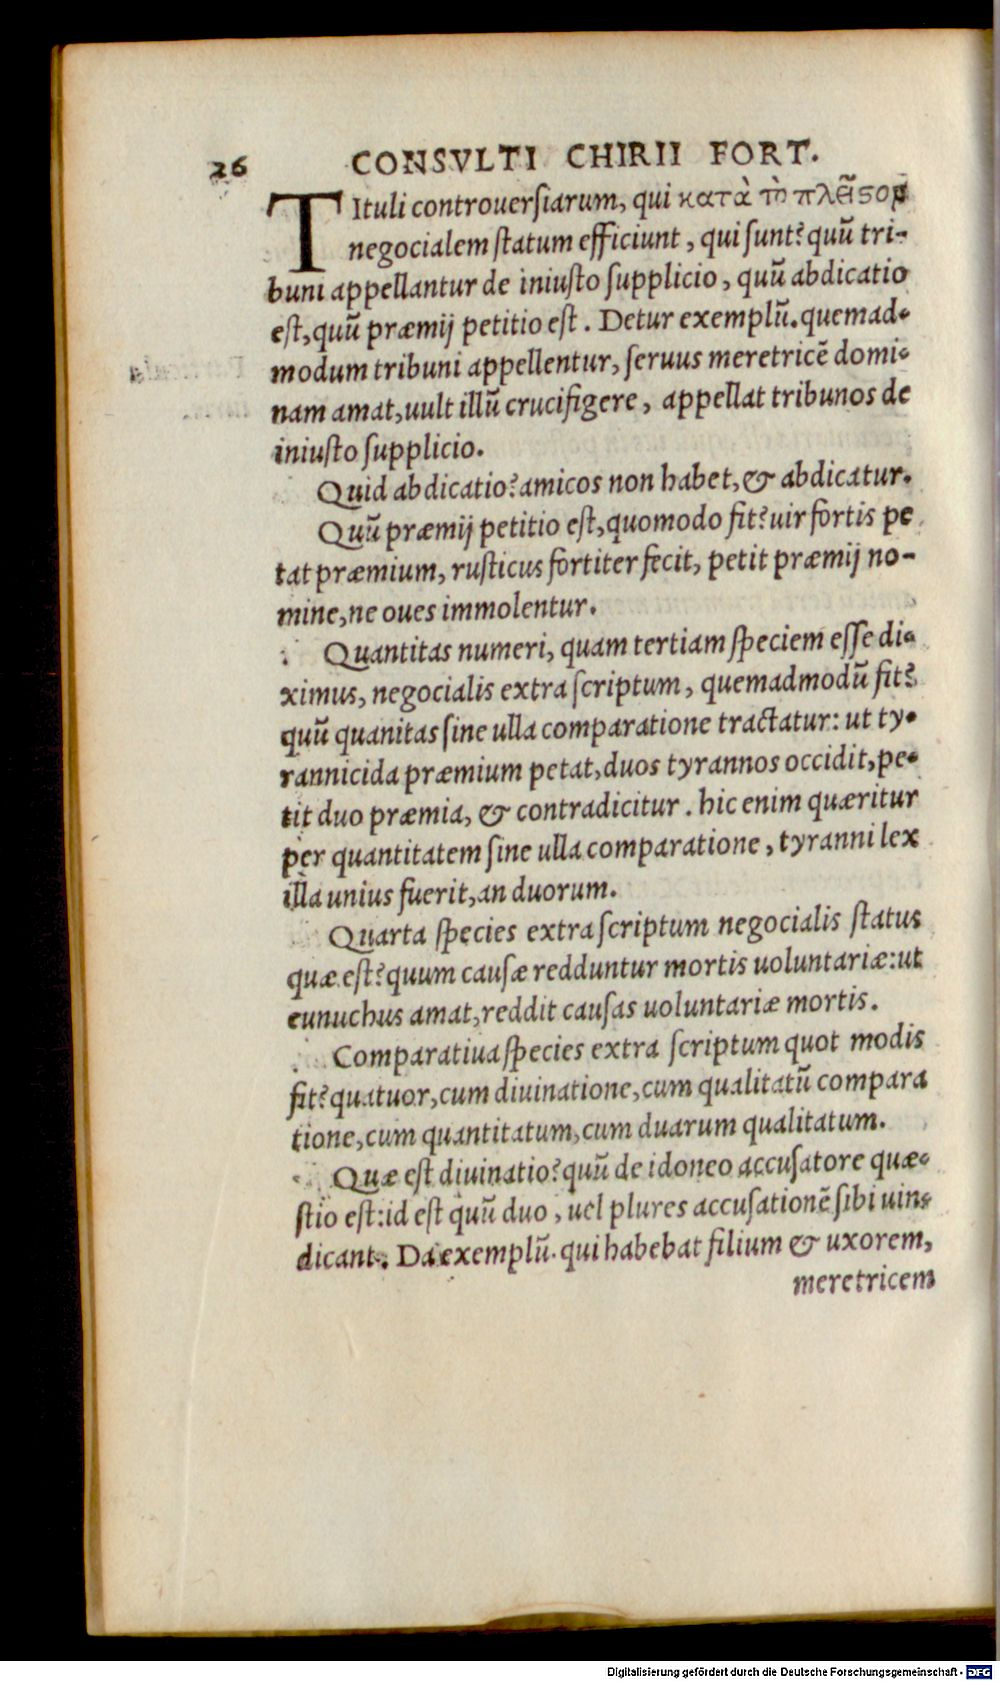 26 CONSVLTI CHIRII FORT.
TItuli controuersiarum, qui κατὰ τὸ πλεῖϛον
negocialem ſtatum efficiunt, qui ſunt? quū tri-
buni appellantur de iniuſto ſupplicio, quū abdicatio
eſt, quū præmij petitio eſt. Detur exemplū. quemad-
modum tribuni appellentur, ſeruus meretricē domi-
nam amat, uult illū crucifigere, appellat tribunos de
iniuſto ſupplicio.
Quid abdicatio? amicos non habet, & abdicatur.
Quū præmij petitio eſt, quomodo fit? uir fortis pe
tat præmium, ruſticus fortiter fecit, petit præmij no-
mine, ne oues immolentur.
Quantitas numeri, quam tertiam ſpeciem eſſe di-
ximus, negocialis extra ſcriptum, quemadmodū fit?
quū quanitas ſine ulla comparatione tractatur: ut ty-
rannicida præmium petat, duos tyrannos occidit, pe-
tit duo præmia, & contradicitur. hic enim quæritur
per quantitatem ſine ulla comparatione, tyranni lex
illa unius fuerit, an duorum.
Quarta ſpecies extra ſcriptum negocialis ſtatus
quæ eſt? quum cauſæ redduntur mortis uoluntariæ: ut
eunuchus amat, reddit cauſas uoluntariæ mortis.
Comparatiua ſpecies extra ſcriptum quot modis
fit? quatuor, cum diuinatione, cum qualitatū compara
tione, cum quantitatum, cum duarum qualitatum.
Quæ eſt diuinatio? quū de idoneo accuſatore quæ-
ſtio eſt: id eſt quū duo, uel plures accuſationē ſibi uin-
dicant. Da exemplū. qui habebat filium & uxorem,
meretricem
Digitalisierung gefördert durch die Deutsche Forschungsgemeinschaft - DFG